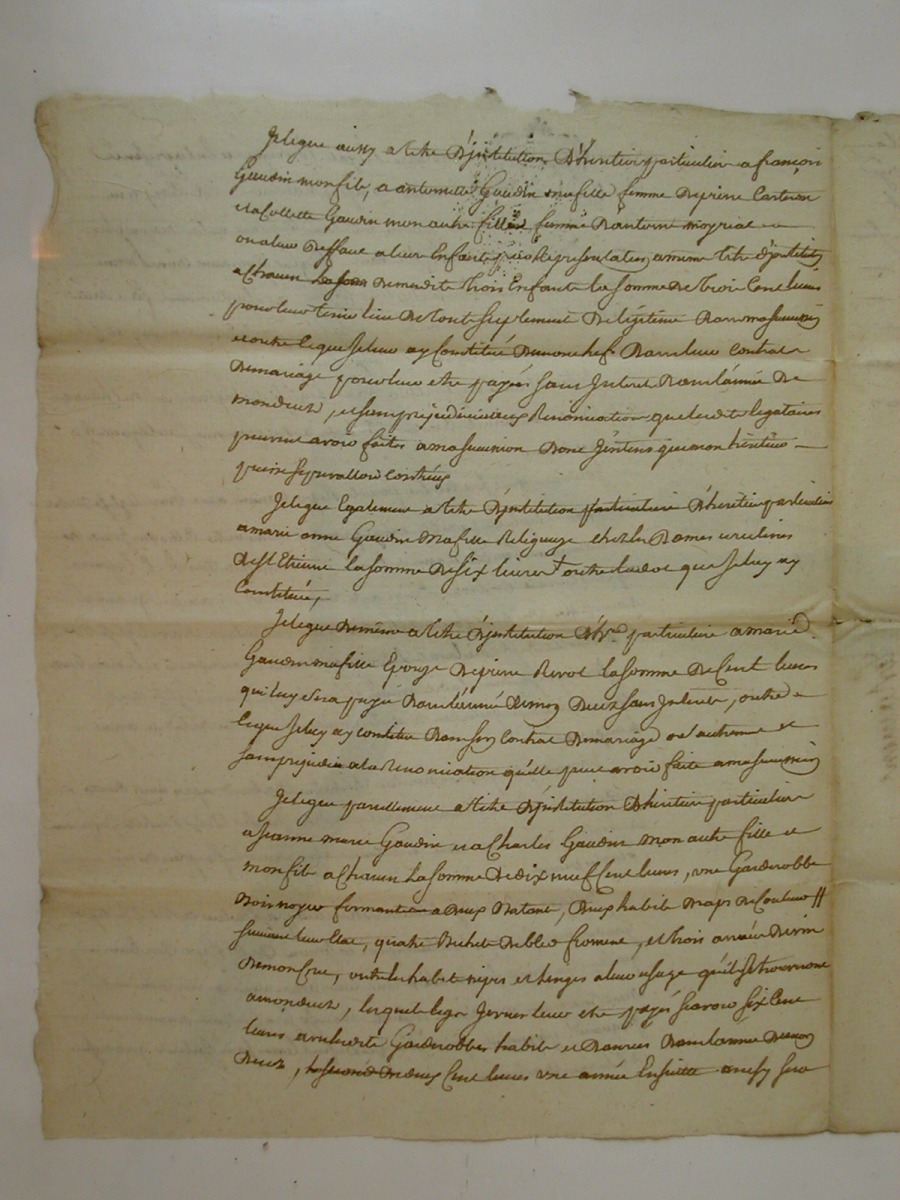 Je legue aussy a titre D'jnstitution D'heritier particulier a françois
Gaudin mon fils, a antoinette Gaudin ma fille femme De pierre Carteron
et a Collette Gaudin mon autre fille femme D'antoine moyriat
ou a leur Deffaut a leur Enfants par Representation a meme titre d'jnstitution
a Chacun De mesdits trois Enfants la somme De trois Cent livres
pour leur tenir lieu De tout Supplement De legitime Dans ma succession
et outre Ce que Je leur ay Constitué De mon chef Dans leur Contrat
De mariage pour leur etre payés sans Jnteret Dans l'année De
mon deces, et sans prejudicier aux Renonciation que lesdits legataires
peuvent avoir faites a ma succession Dont J'entens que mon heritier
puisse se prevalloir contr'eux
Je legue Egalement a titre D'jnstitution particuliere D'heritier particulier
a marie anne Gaudin Ma fille Religieuse chez les Dames ursulines
De St Etienne la somme De six livres outre la dot que Je luy ay
Constituée,
Je legue De même a titre D'jnstitution particuliere a marie
Gaudin ma fille Epouze De pierre Revot la somme De Cent livres
qui luy sera payé Dans l'année De mon Deces sans Jnteret, outre
Ce que Je luy ay constitué Dans son Contrat De mariage et
sans prejudice a la Renonciation qu'elle peut avoir faite a ma succession
Je legue pareillement a titre D'jnstitution D'heritier particulier
a Jeanne marie Gaudin et a Charles Gaudin mon autre fille et
mon fils a Chacun La somme De dix neuf Cent livres, une Garderobbe
Bois noyer fermant a Deux Batans, Deux habits Draps De Couleur
suivant leur Etat, quatre Bichets De bled froment, et trois années De vin
De mon Cru, outre les habits nipes et linges a leur usage qu'il se trouveront
a mon deces, lesquels legs Seront leur etre payés Scavoir six Cent
livres avec lesdits Garderobbes habits et Danrées Dans l'année De mon
Deces, Cent livres une année Ensuitte ainsy sera